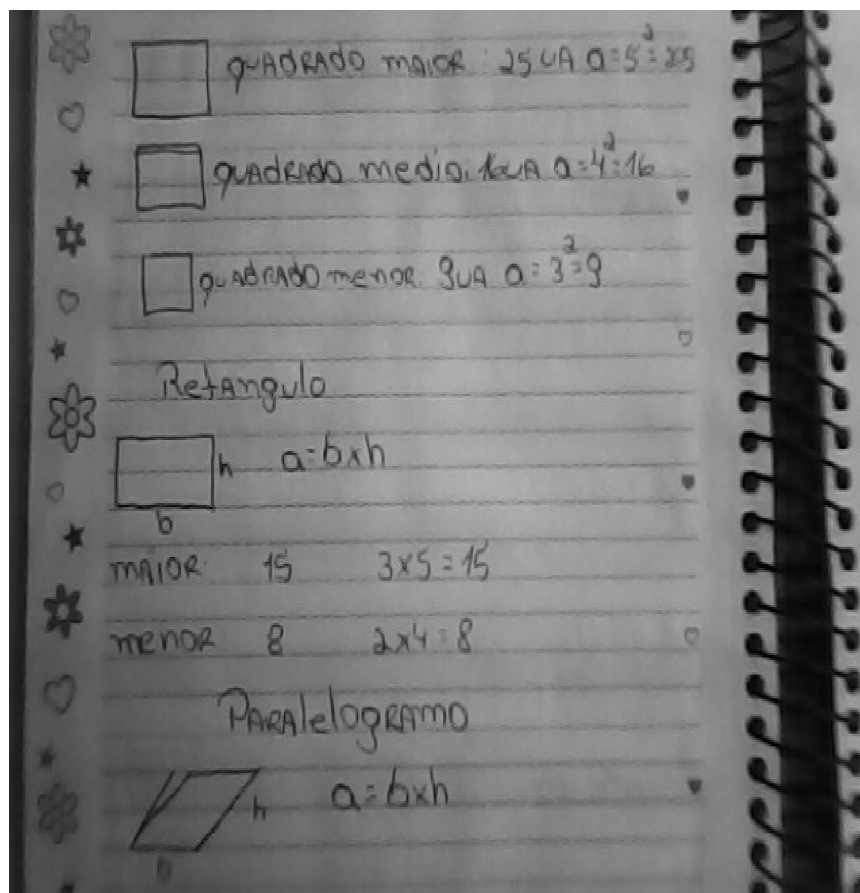 quadrado maior: 25 UA a=5²=25
quadrado medio: 16UA a=4²=16
quadrado menor 9UA a=3²=9
Retangulo
h a=bxh
b
maior 15 3x5=15
menor 8 2x4=8
Paralelogramo
h a=bxh
b